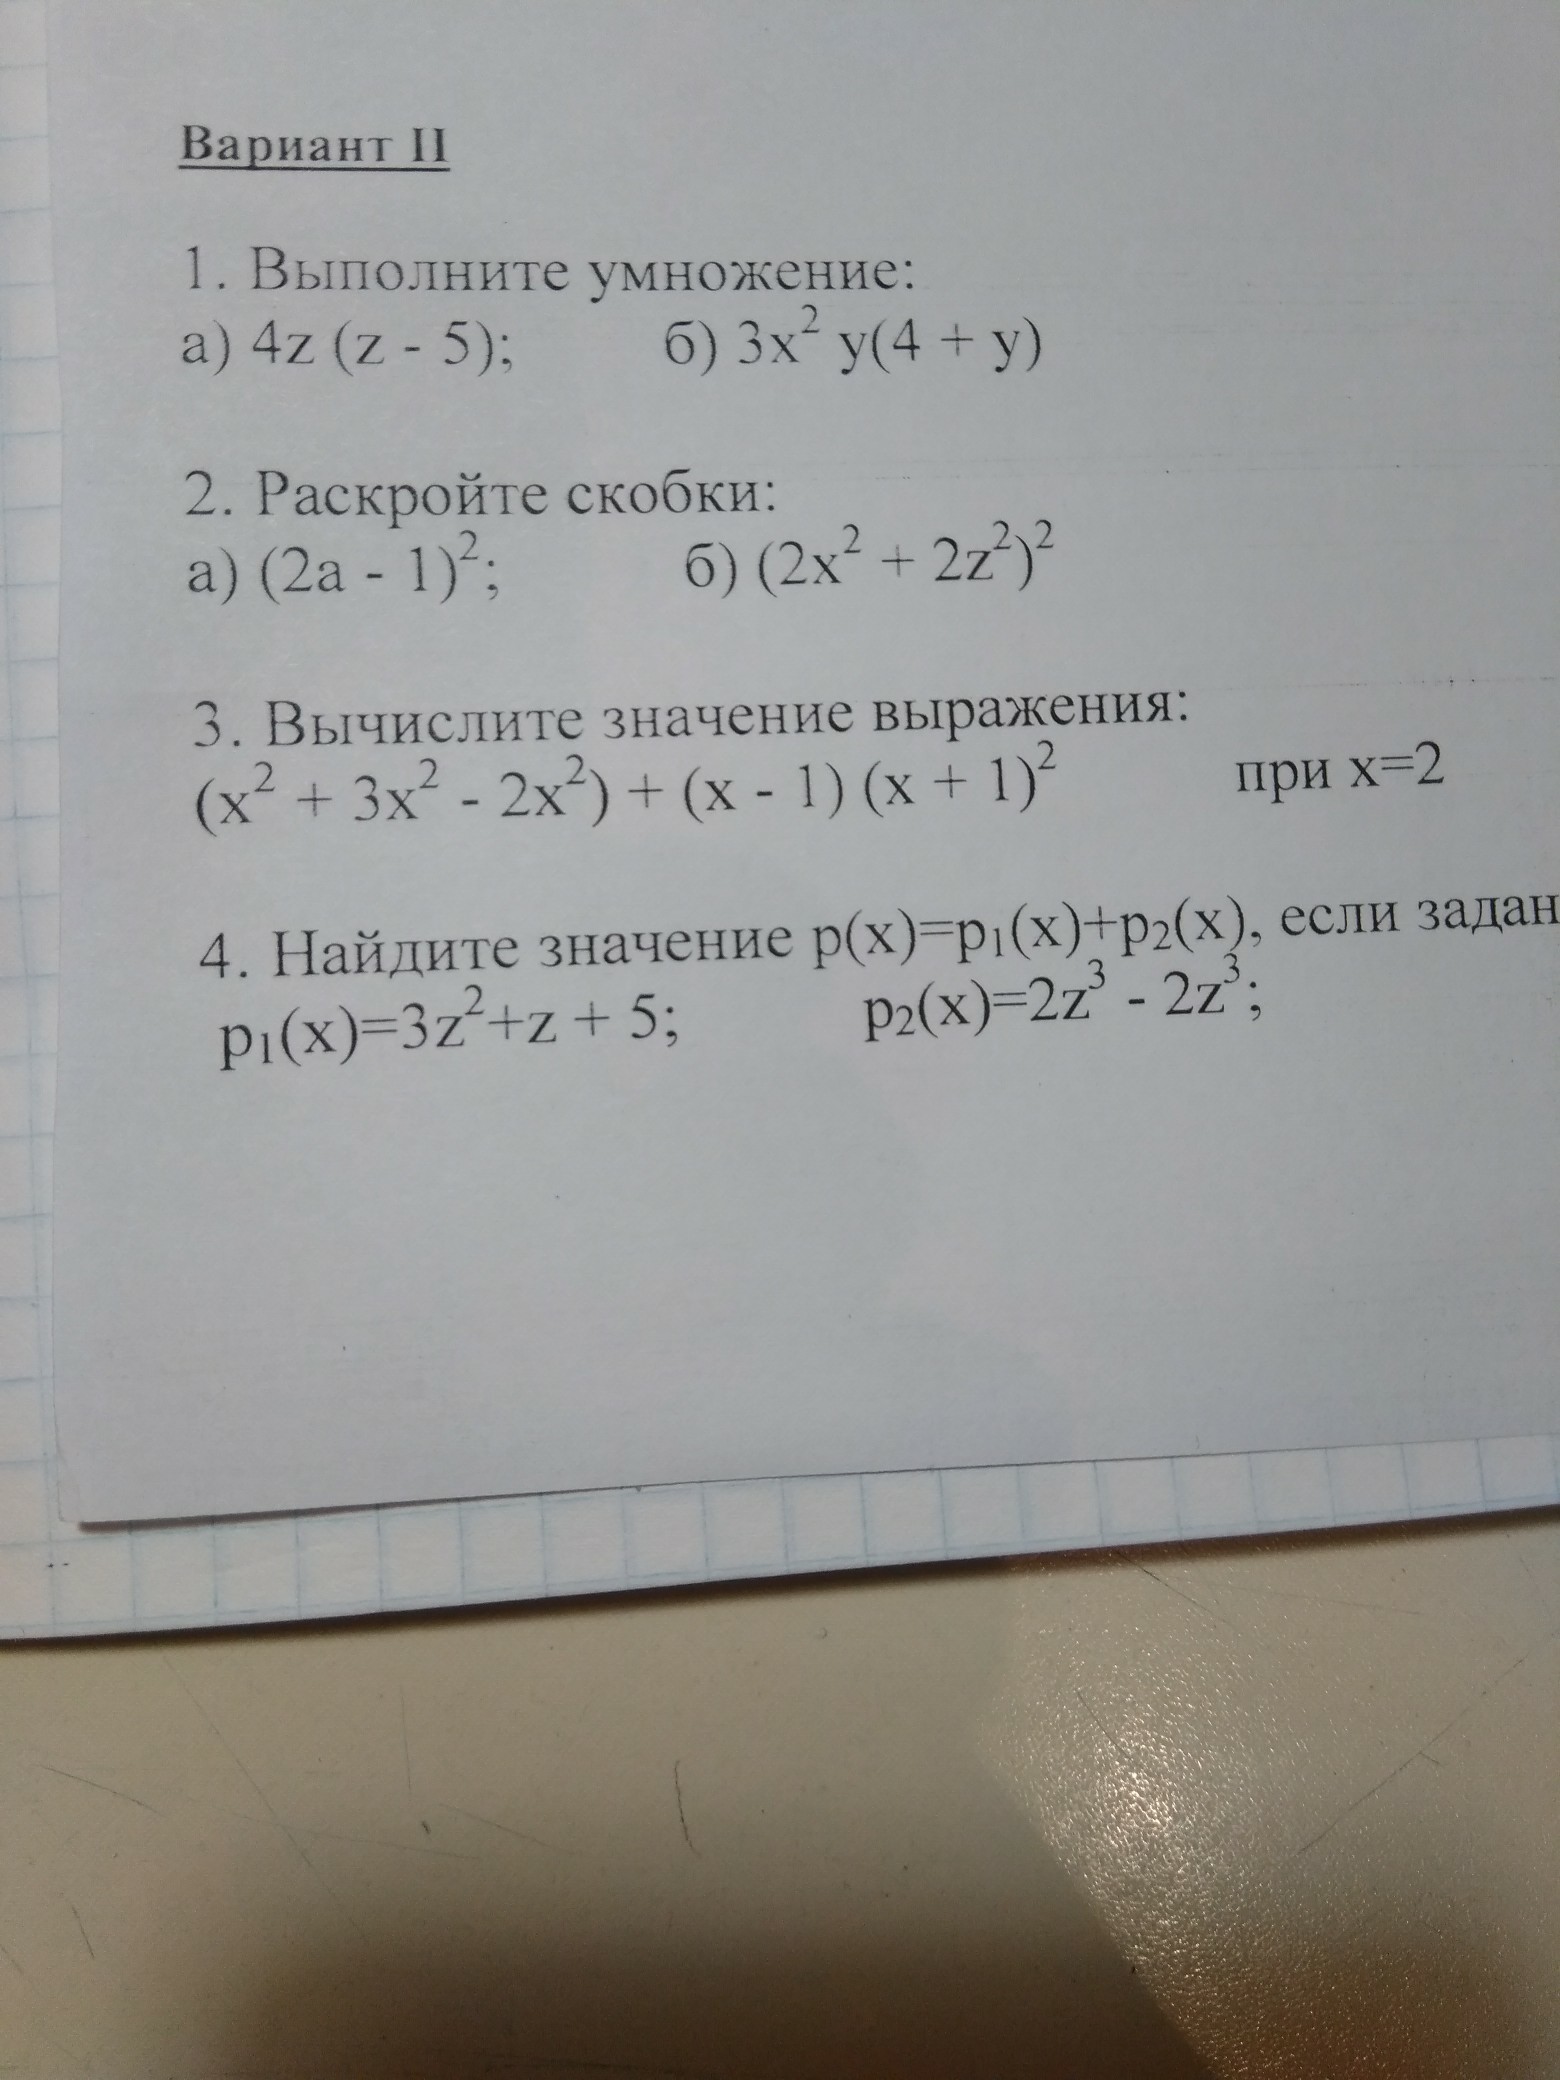 Вариант II
1. Выполните умножение:
а) 4z (z - 5); б) 3x² y(4 + y)
2. Раскройте скобки:
а) (2a - 1)²; б) (2x² + 2z²)²
3. Вычислите значение выражения:
(x² + 3x² - 2x²) + (x - 1) (x + 1)² при x=2
4. Найдите значение p(x)=p₁(x)+p₂(x), если задан
p₁(x)=3z²+z + 5; p₂(x)=2z³ - 2z³;